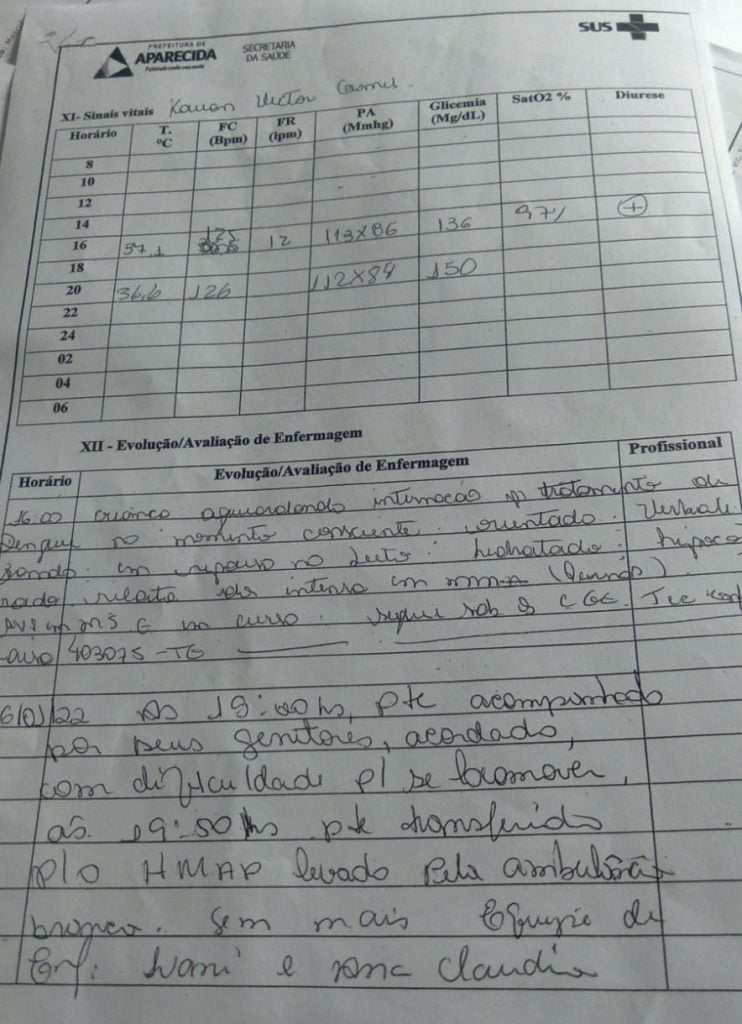 SUS
PREFEITURA DE
APARECIDA
SECRETARIA
DA SAÚDE
XI- Sinais vitais Victor
Horário T. ºC FC (Bpm) FR (ipm) PA (Mmhg) Glicemia (Mg/dL) SatO2 % Diurese
8
10
12
14
16 37.1 125 12 113x86 136 97% +
18
20 36,6 126 112x84 150
22
24
02
04
06
XII - Evolução/Avaliação de Enfermagem
Horário Evolução/Avaliação de Enfermagem Profissional
16:00 criança aguardando internação p/ tratamento de
Dengue no momento consciente. orientado. Verbali
zando. em repouso no leito. hidratado. hipoco
rado. relata dor intensa em
em curso. segue sob
403075-TE
6/01/22 As 19:00 hs, pte acompanhado
por seus genitores, acordado,
com dificuldade p/ se locomover,
as 19:50 hs pte transferido
p/o HMAP levado pela ambulância
branca. Sem mais Equipe de
Enf: Ivani e Ana Claudia